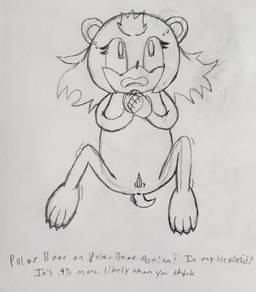 Polar Bear on Polar Bear Action? In my
It's .9% more likely than you think